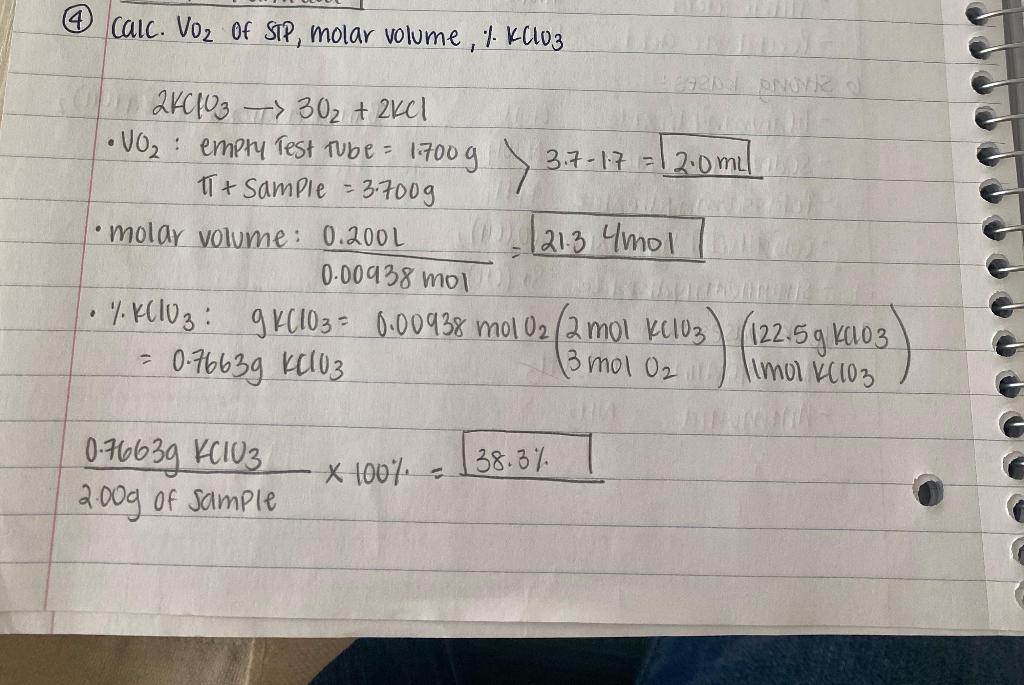 ④ Calc. VO₂ of STP, molar volume, % KClO3
2KClO3 → 3O₂ + 2KCl
• VO₂ : empty Test Tube = 1.700g > 3.7-1.7 = 2.0mL
TT + Sample = 3.700g
• molar volume: 0.200L / 0.00938 mol = 21.3 L/mol
• % KClO3 : g KClO3 = 0.00938 mol O₂ (2 mol KClO3 / 3 mol O₂) (122.5g KClO3 / 1mol KClO3)
= 0.7663g KClO3
0.7663g KClO3 / 2.00g of sample × 100% = 38.3%